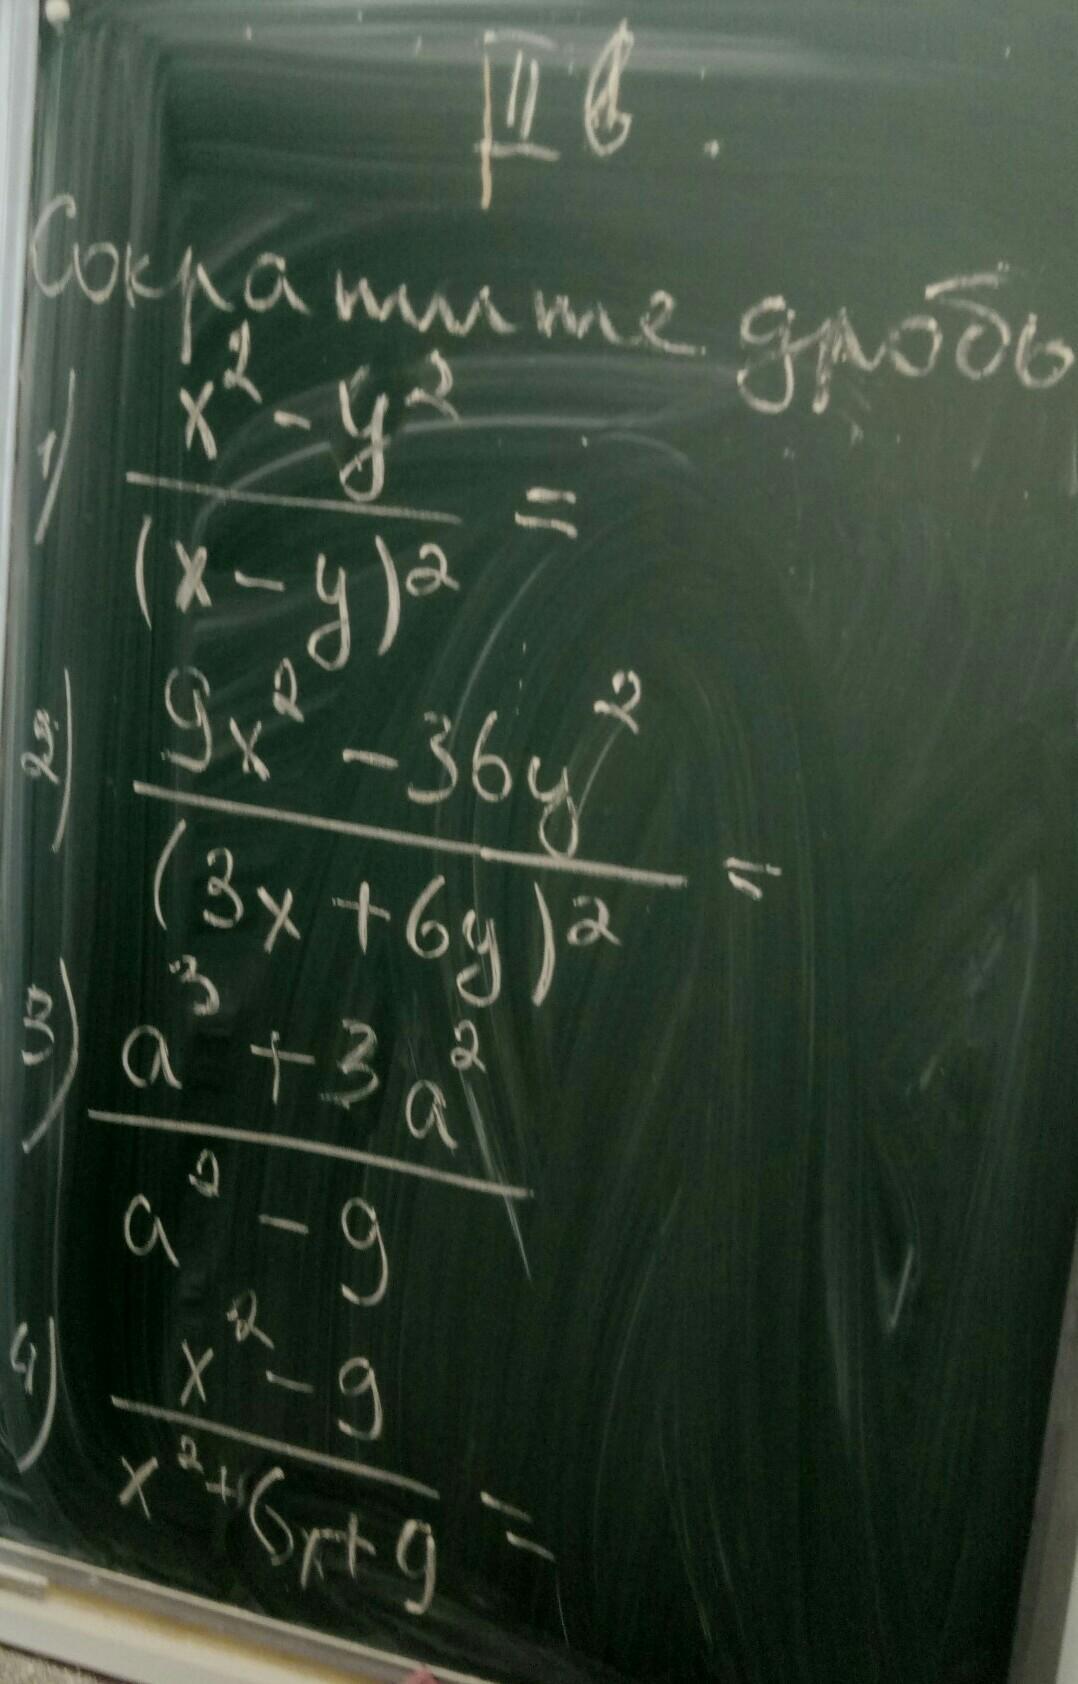 II в.
Сократите дробь
1) (x² - y²) / (x - y)² =
2) (9x² - 36y²) / (3x + 6y)² =
3) (a³ + 3a²) / (a² - 9)
4) (x² - 9) / (x² + 6x + 9) =